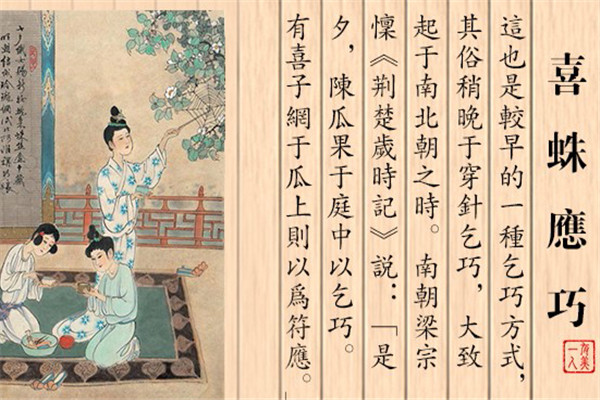 喜蛛應巧
有美一人
這也是較早的一種乞巧方式，
其俗稍晚于穿針乞巧，大致
起于南北朝之時。南朝梁宗
懍《荆楚歲時記》説：「是
夕，陳瓜果于庭中以乞巧。
有喜子網于瓜上則以爲符應。